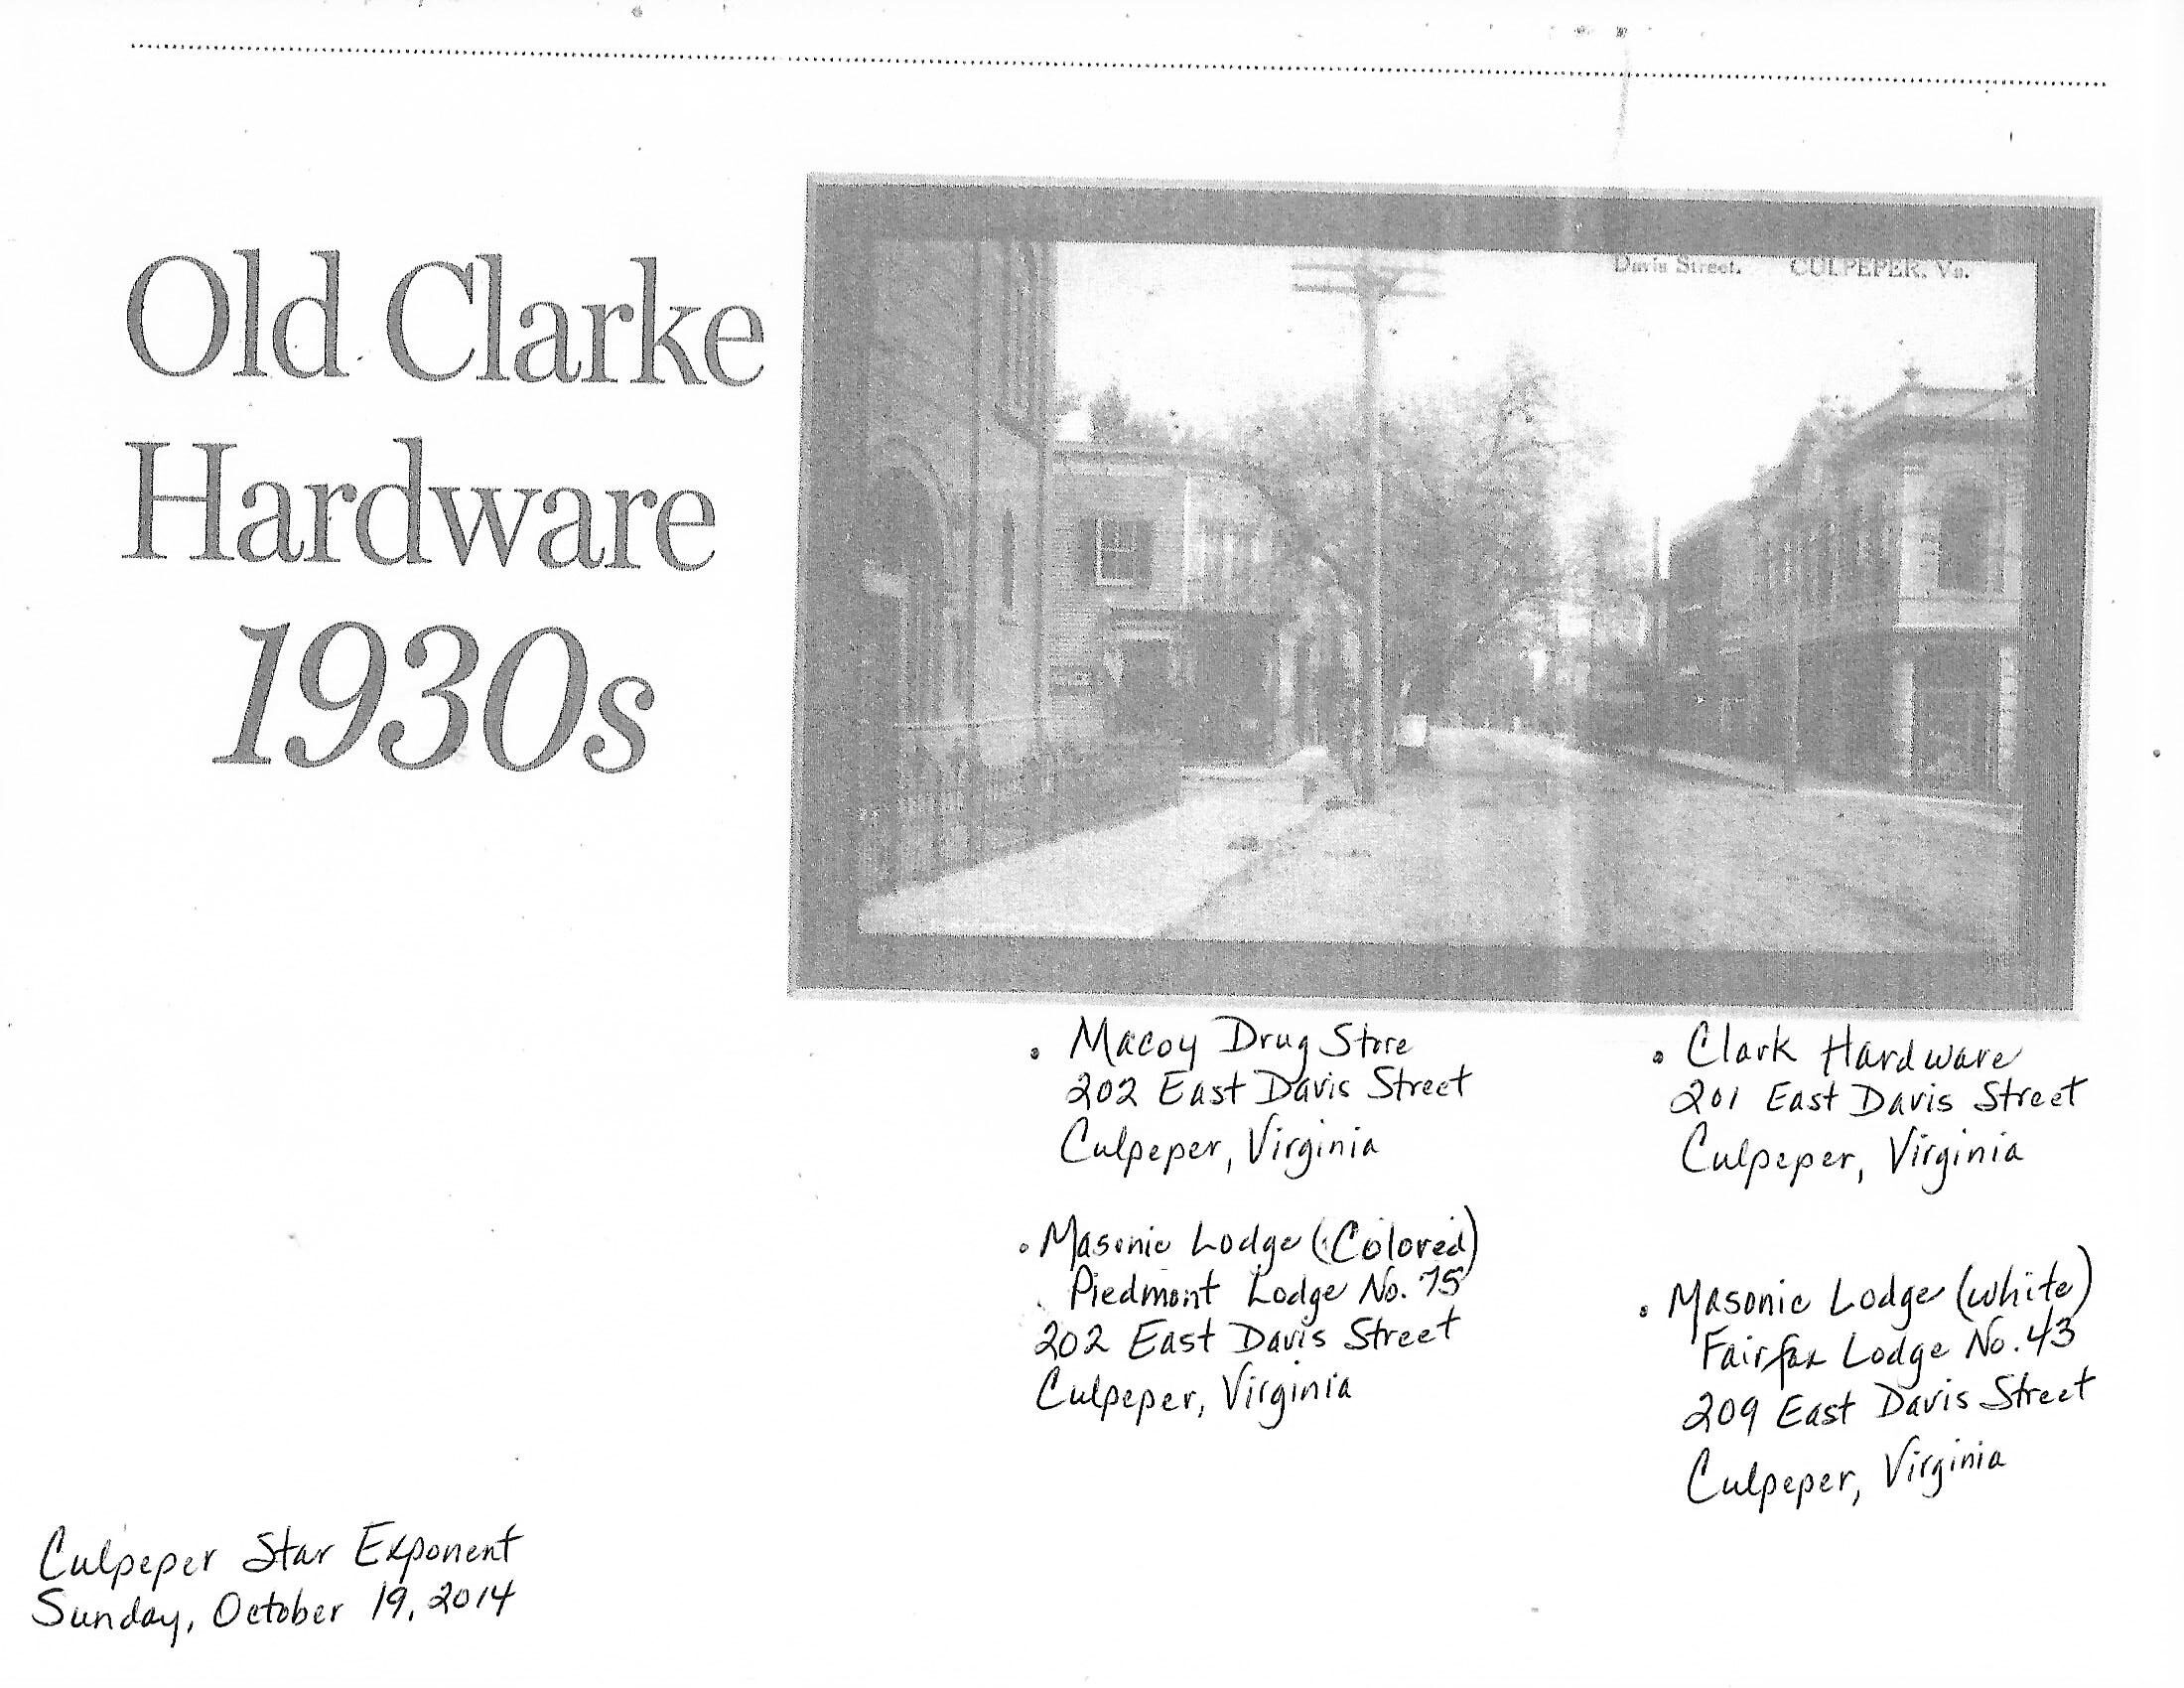 Old Clarke
Hardware
1930s
Davis Street. CULPEPER, Va.
• Macoy Drug Store
202 East Davis Street
Culpeper, Virginia
• Clark Hardware
201 East Davis Street
Culpeper, Virginia
• Masonic Lodge (Colored)
Piedmont Lodge No. 75
202 East Davis Street
Culpeper, Virginia
• Masonic Lodge (white)
Fairfax Lodge No. 43
209 East Davis Street
Culpeper, Virginia
Culpeper Star Exponent
Sunday, October 19, 2014